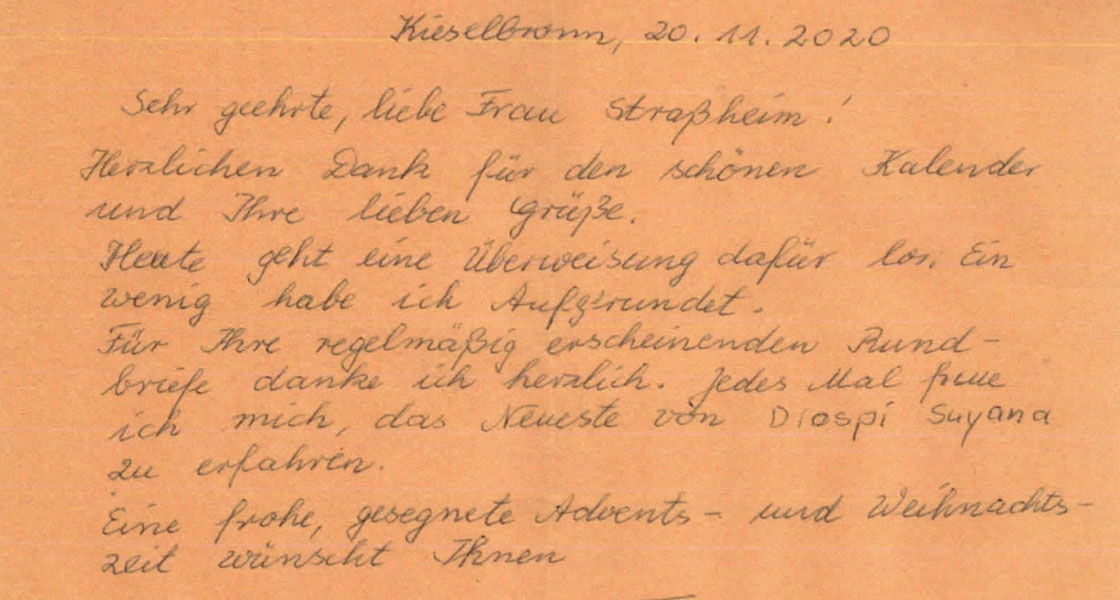 Kieselbronn, 20.11.2020
Sehr geehrte, liebe Frau Straßheim!
Herzlichen Dank für den schönen Kalender
und Ihre lieben Grüße.
Heute geht eine Überweisung dafür los. Ein
wenig habe ich Aufgerundet.
Für Ihre regelmäßig erscheinenden Rund-
briefe danke ich herzlich. Jedes Mal freue
ich mich, das Neueste von Diospi Suyana
zu erfahren.
Eine frohe, gesegnete Advents- und Weihnachts-
zeit wünscht Ihnen